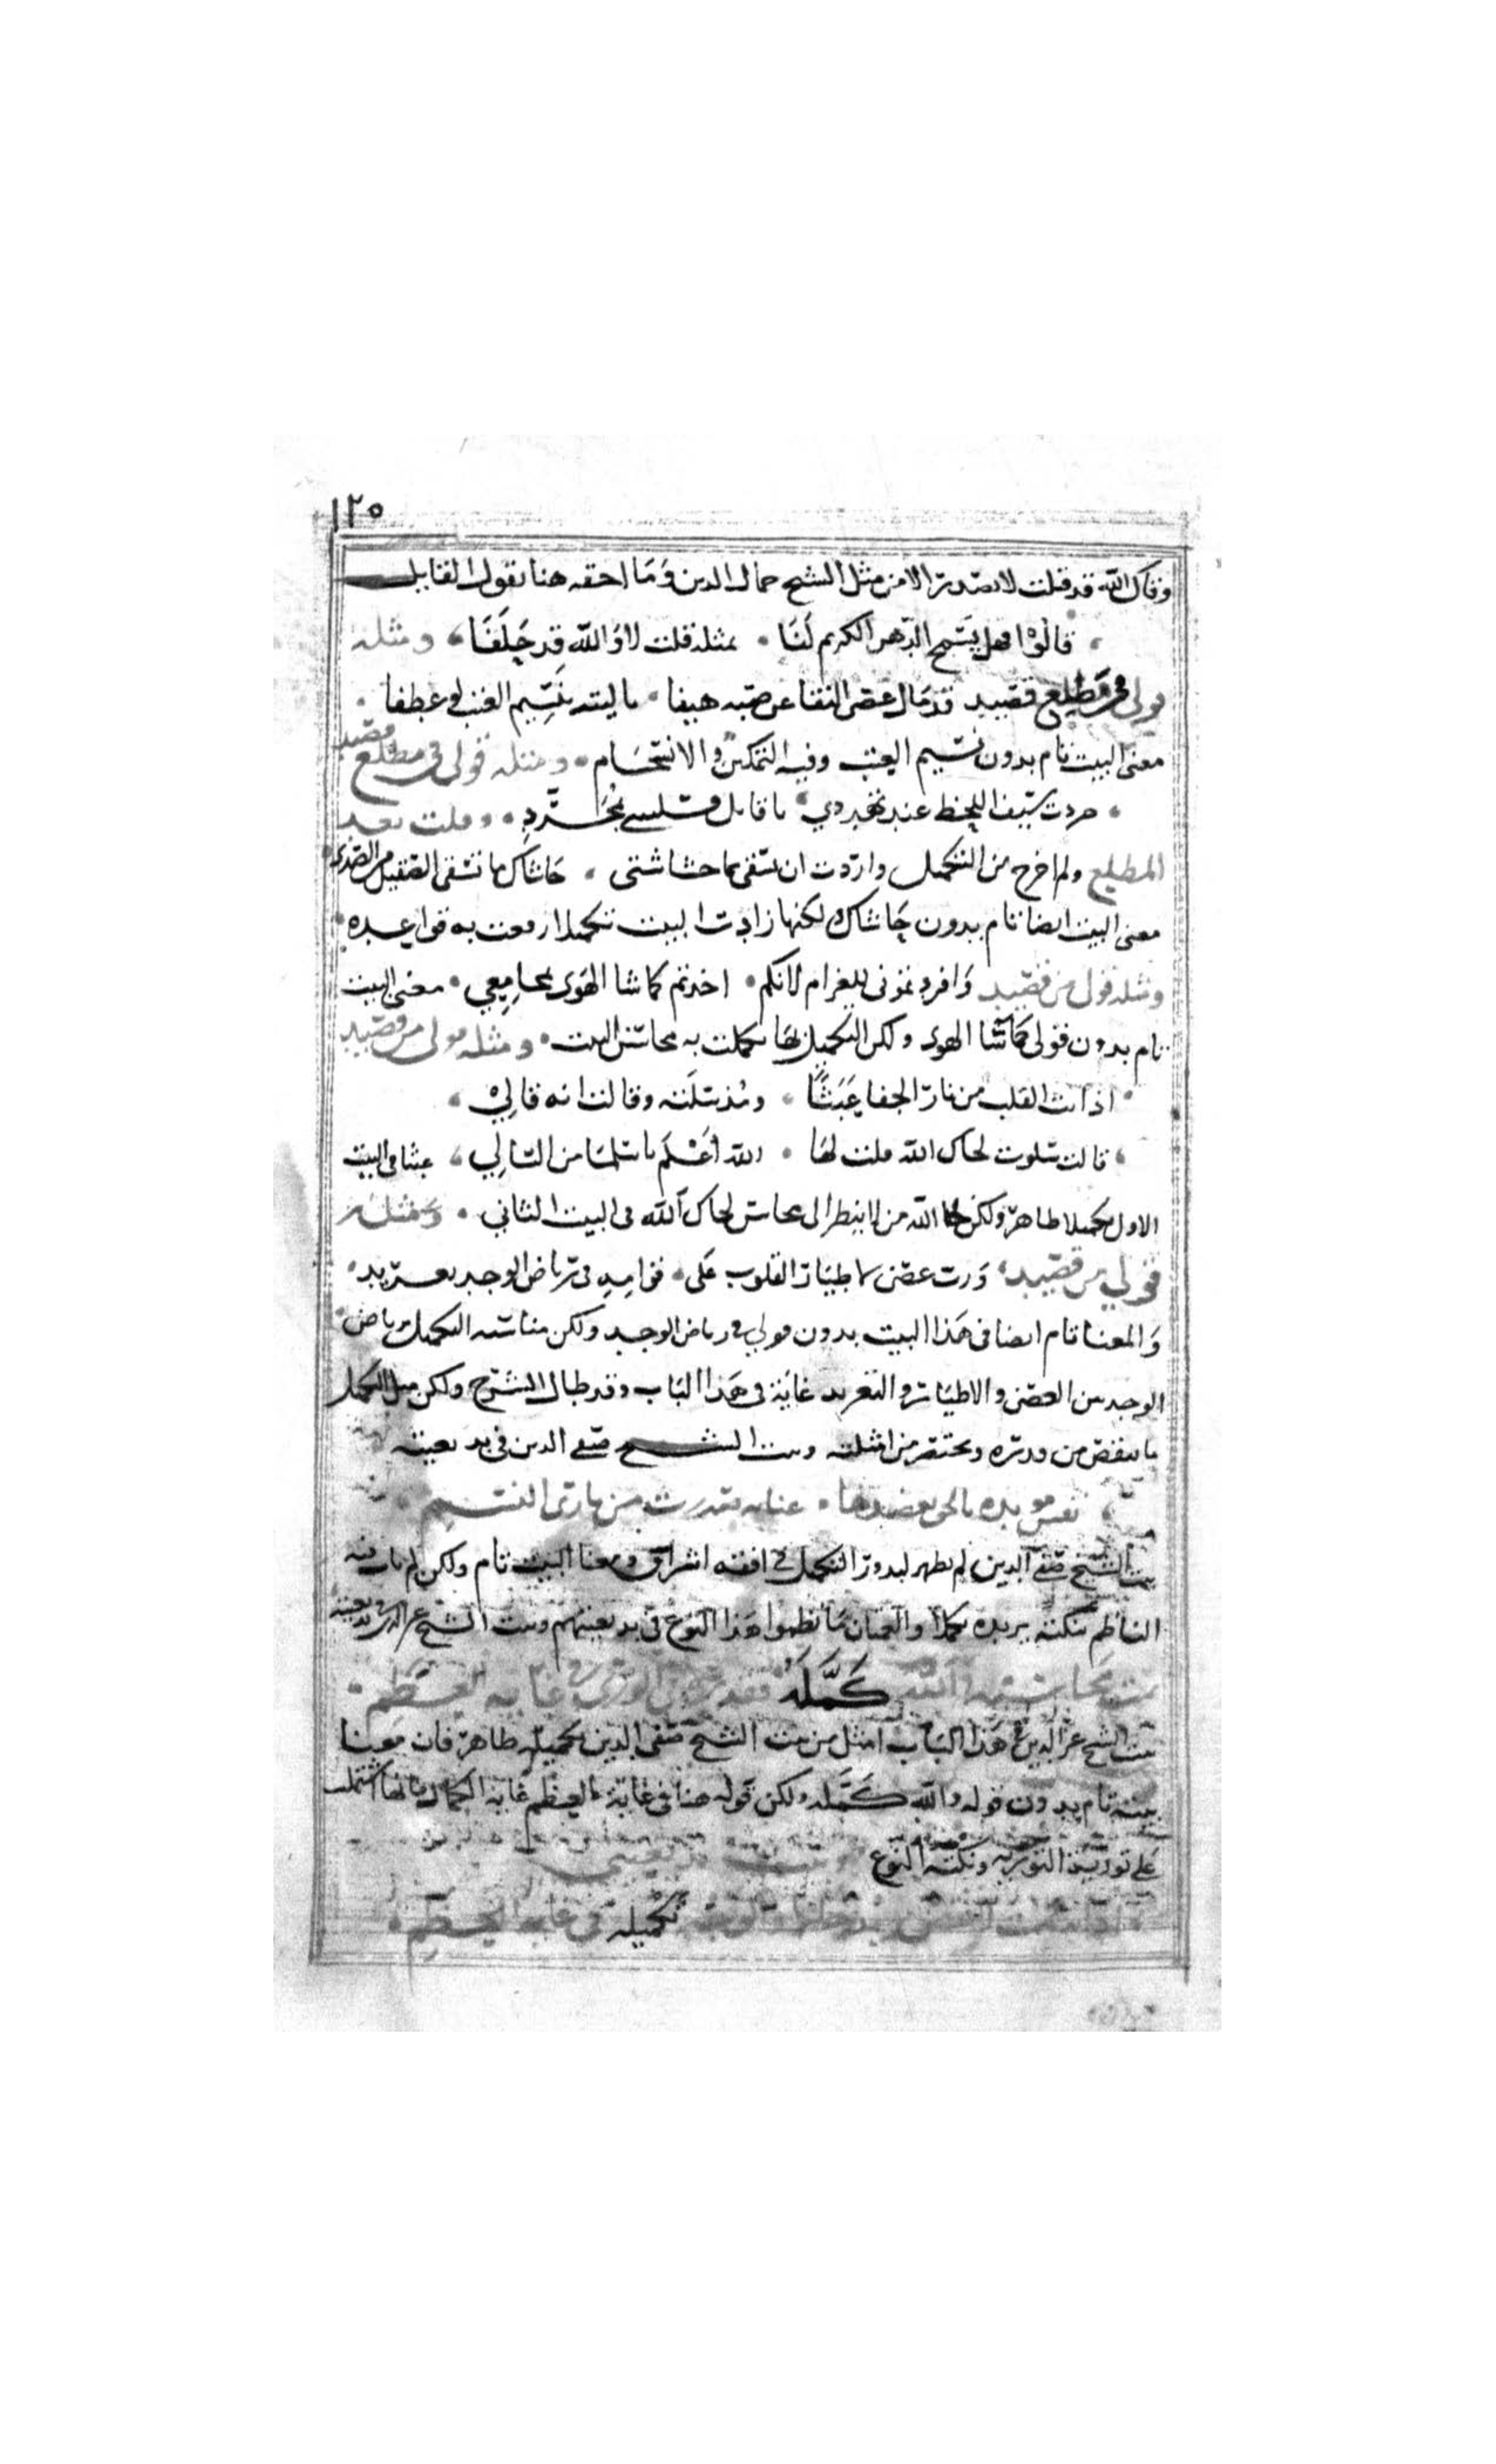 ١٢٥
وقاك الله قد قلت لا تصدر الا من مثل الشيخ جمال الدين وما احقه هنا بقول القايل
قالوا فهل يسمح الدهر الكريم لنا بمثله قلت لا والله قد حلفا ومثله
قولي في مطلع قصيد قد مال غصن النقا عن صبه هيفا يا ليته بنسيم العتب لو عطفا
معنى البيت تام بدون نسيم العتب وفيه التمكين والانسجام ومثله قولي في مطلع قصيد
جردت سيف اللحظ عند تهددي يا قاتلي فسلبتني بمجرد وقلت بعد
المطلع ولم اخرج من التكميل واردت ان تسقى بما حشاشتي حاشاك ما تشفى الصقيل من الصدى
معنى البيت ايضا تام بدون حاشاك لكنها زادت البيت تكميلا ارتفعت به قواعده
ومثله قولي من قصيد وافردتموني للغرام لانكم اخذتم كما شا الهوى بمجامعي معنى البيت
تام بدون قولي كما شا الهوى ولكن التكميل بها كملت به محاسن البيت ومثله قولي من قصيد
اذابت القلب من نار الجفا عبثا ومذ سلته وقالت انه قالي
قالت سلوت لحاك الله قلت لها الله اعلم يا سلما من السالي عبثا في البيت
الاول تكميلا ظاهر ولكن لحا الله من لا ينظر الى محاسن لحاك الله في البيت الثاني ومثله
قولي من قصيد ورب غصن لاطيار القلوب على قوامه في رياض الوجد تغريد
والمعنا تام ايضا في هذا البيت بدون قولي في رياض الوجد ولكن مناسبه التكميل برياض
الوجد بين الغصن والاطيار والتغريد غاية في هذا الباب وقد طال الشرح ولكن مثل التكميل
ما ينقص من قدره ويختصر من امثلته وبيت الشيخ صفي الدين في بديعيته
نفس مويده بالحق تعضدها عنايه صدرت من باري النسم
بيت الشيخ صفي الدين لم يظهر لبدور التكميل في افقه اشراق ومعنا البيت تام ولكن لم يات فيه
الناظم بنكته يزيده تكملا والعميان ما نظموا هذا النوع في بديعيتهم وبيت الشيخ عز الدين في بديعيته
تمت محاسنه والله كمله
بيت الشيخ عز الدين في هذا الباب امثل من بيت الشيخ صفي الدين تكميله ظاهر فان معنا
بيته تام بدون قوله والله كمله ولكن قوله هنا في غاية العظم غايه الكمال فانها اشتملت
على تورية التورية ونكته النوع
تكميله في غايه العظم